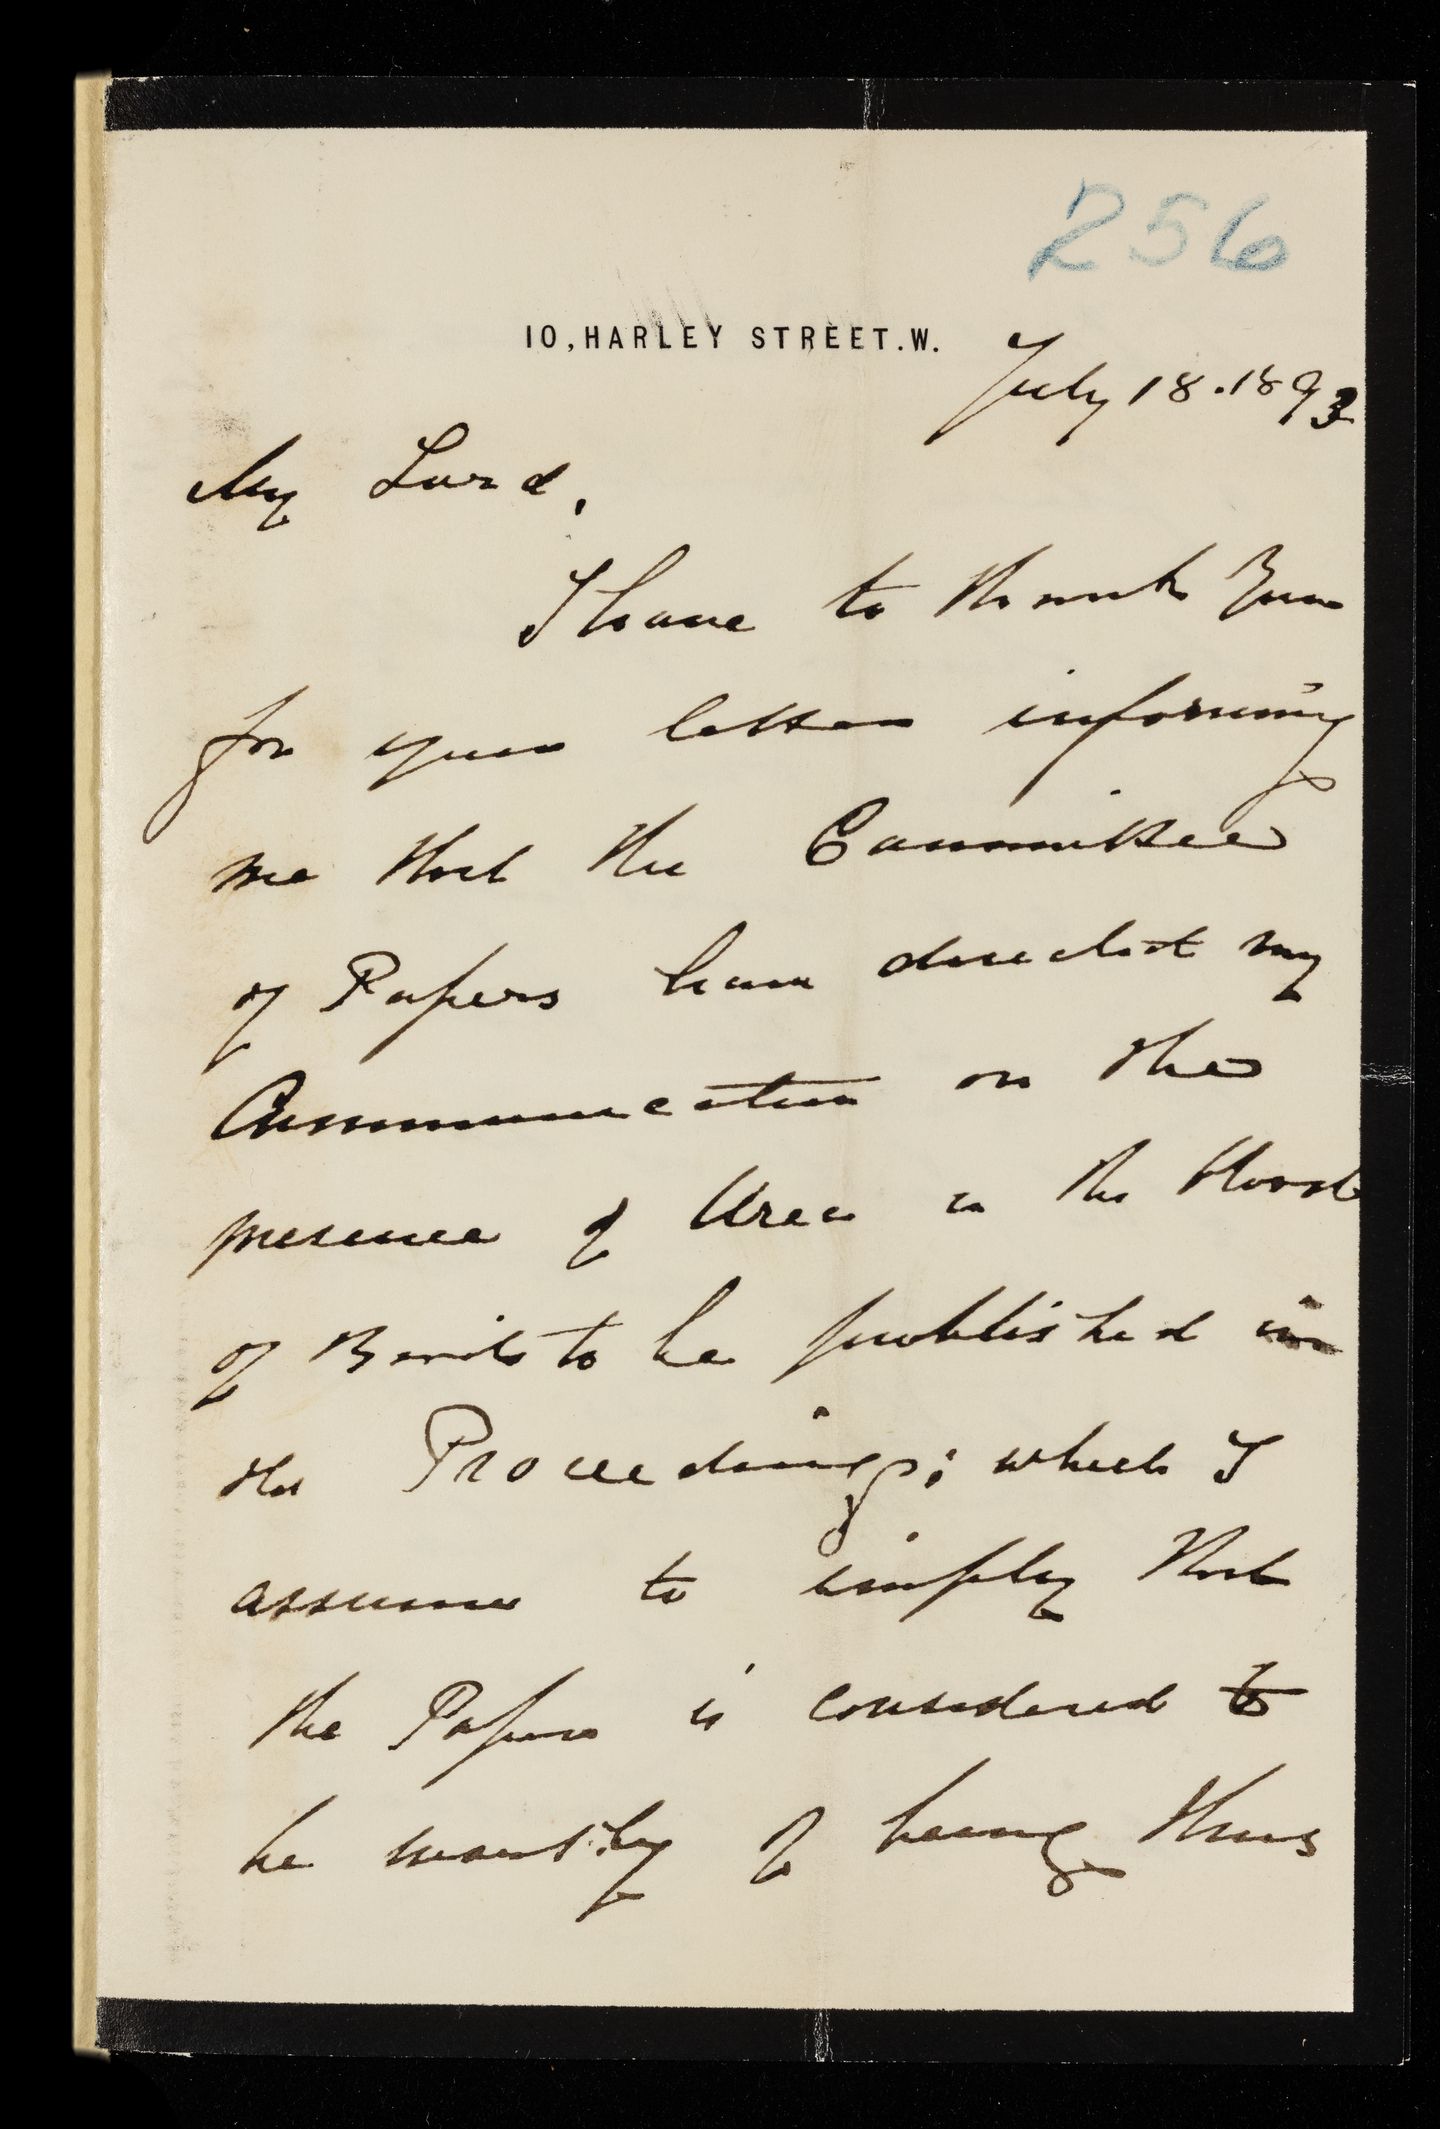 256
10, HARLEY STREET. W.
July 18. 1893
My Lord,
I have to thank you
for your letter informing
me that the Committee
of Papers have directed my
Communication on the
presence of Urea in the blood
of Birds to be published in
the Proceedings; which I
assume to imply that
the Paper is considered to
be worthy of being thus